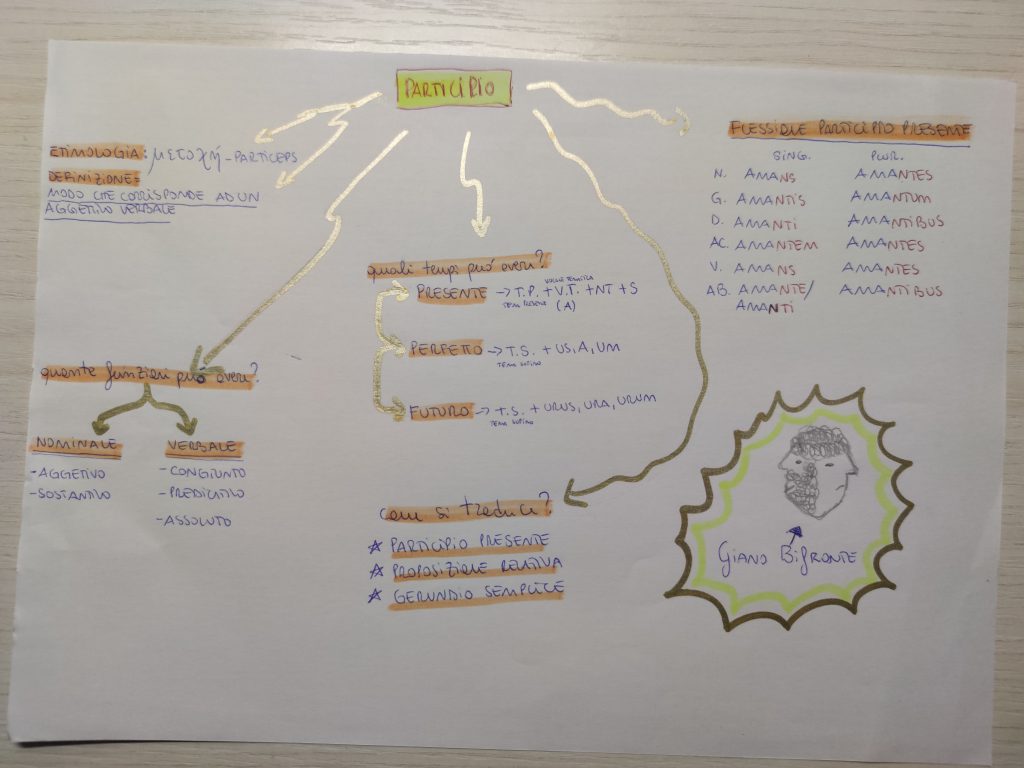 PARTICIPIO
ETIMOLOGIA: μετοχή - PARTICEPS
DEFINIZIONE=
MODO CHE CORRISPONDE AD UN
AGGETIVO VERBALE
quali tempi può avere?
PRESENTE → T.P. + V.T. + NT + S
VOCALE TEMATICA
TEMA PRESENTE (A)
PERFETTO → T.S. + US, A, UM
TEMA SUPINO
FUTURO → T.S. + URUS, URA, URUM
TEMA SUPINO
quante funzioni può avere?
NOMINALE
- AGGETIVO
- SOSTANTIVO
VERBALE
- CONGIUNTO
- PREDICATIVO
- ASSOLUTO
come si traduce?
PARTICIPIO PRESENTE
PROPOSIZIONE RELATIVA
GERUNDIO SEMPLICE
FLESSIONE PARTICIPIO PRESENTE
SING. PLUR.
N. AMANS AMANTES
G. AMANTIS AMANTUM
D. AMANTI AMANTIBUS
AC. AMANTEM AMANTES
V. AMANS AMANTES
AB. AMANTE/ AMANTIBUS
AMANTI
GIANO BIFRONTE